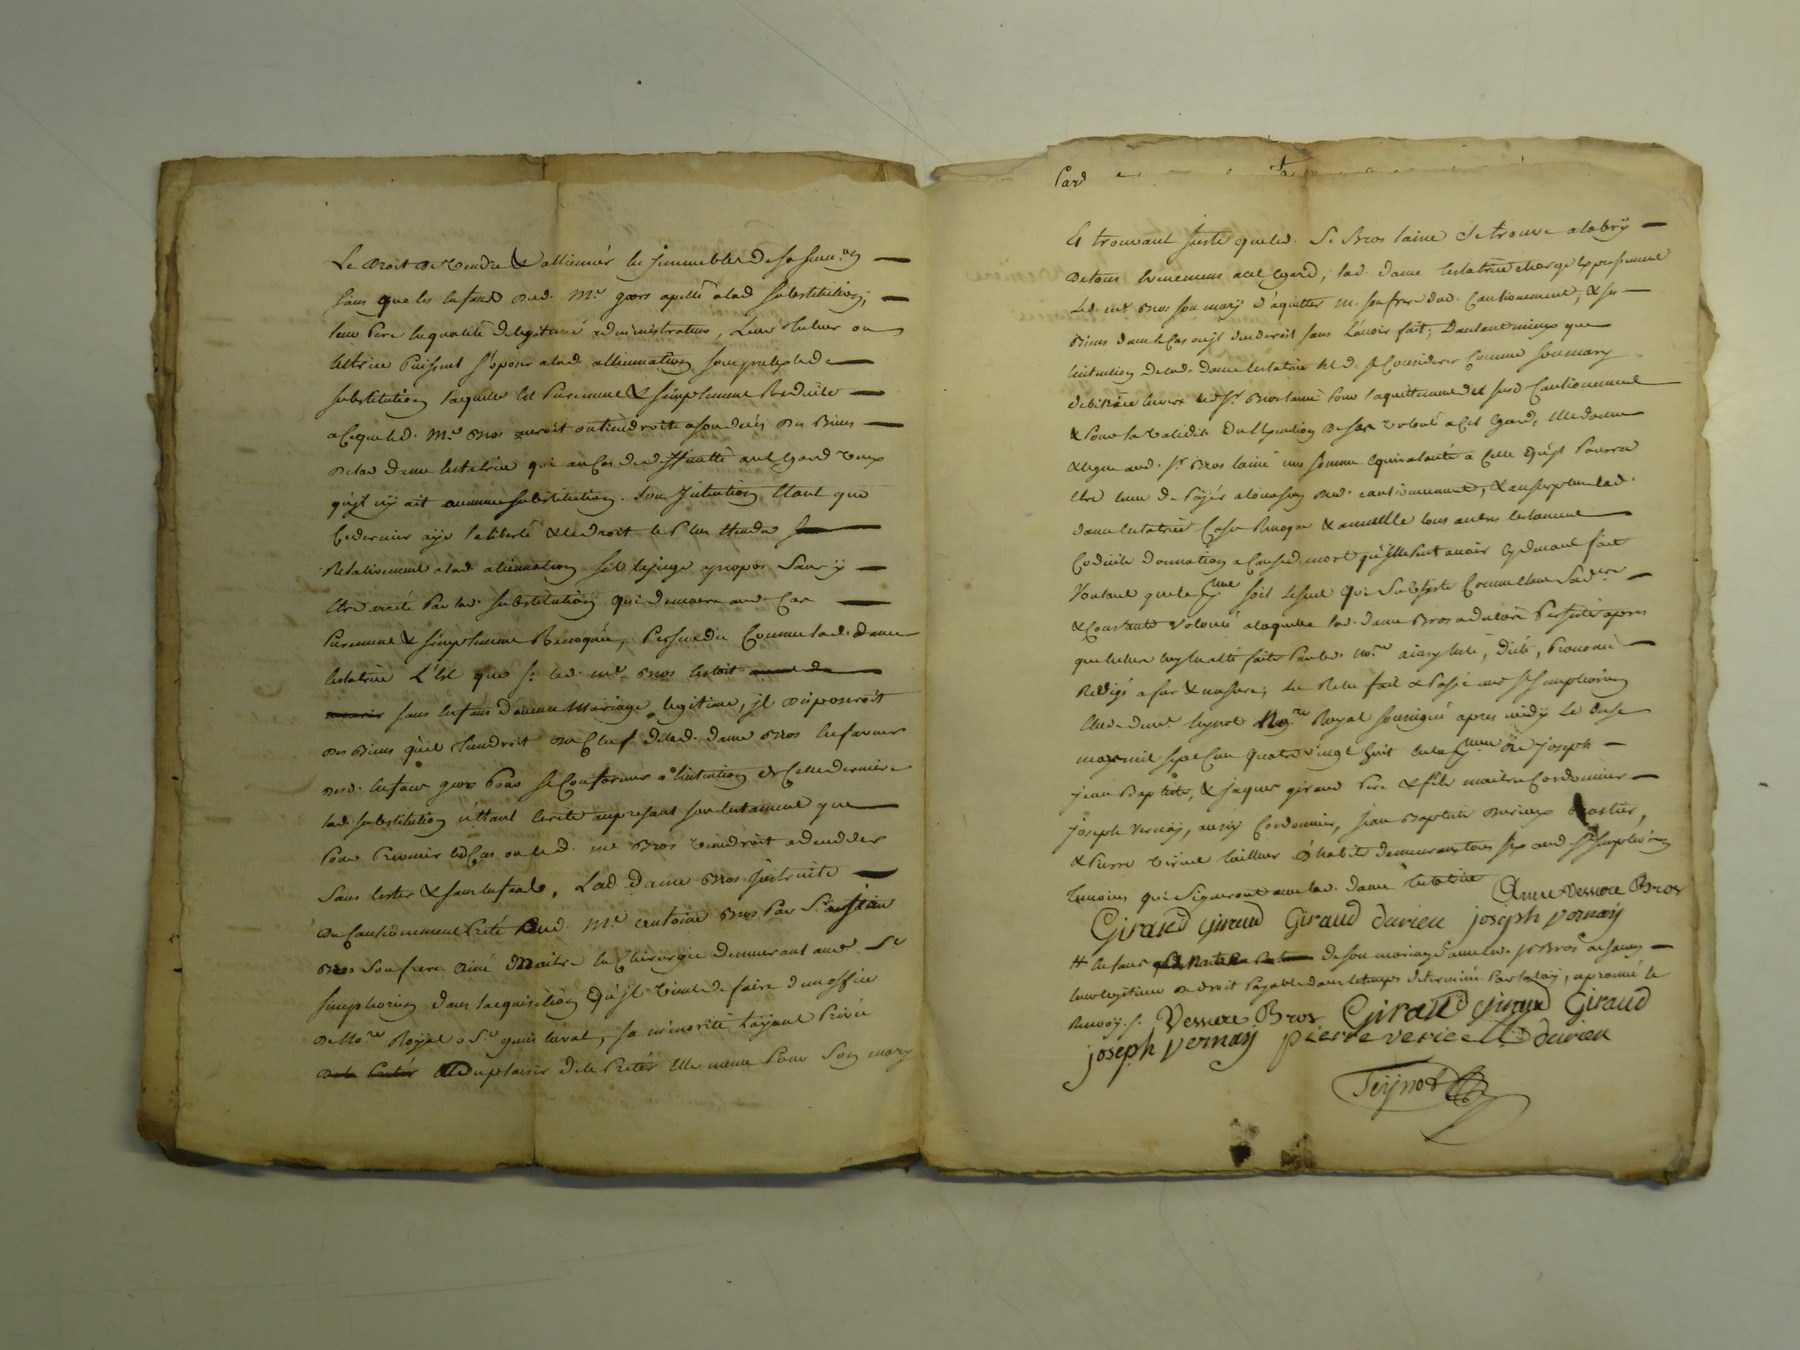 Le Droit De Vendre & alliennér les jmmeubles de sa succ.on
sans que les Enfants dud. Me gors apellé alad substitution;
leur Pere En qualité de légitime administrateur, Leur tuteur ou
tutrice Puissent s'oposer alad. alliennation, sous prétexte de
substitution laquelle Est Purement & simplement Reduite
a Ce que led. Me Bros auroit ou tiendroit a son décés Des Biens
De lad. dame testatrice qui au Cas de d. a cet Egard veux
qu'jl n'y ait aucune substitution. Son Jntention Etant que
Ce dernier aÿe la liberté & le droit le Plus Etendu
Relativement alad. aliennation s'il le juge apropos Sans ÿ
Etre gené Par lad. substitution qui demeure aud. Cas
Purement & simplement Revoquée, Persuadée Comme lad. dame
testatrice L'Est que si led. me Bros
sans Enfans d'aucun Mariage legitime, jl Disposeroit
Des Biens qu'il tiendroit du Chef de lad. dame Bros En faveur
Dud. Enfans gors Pour se Conformer a l'intention de Cette derniere
lad. substitution n'Etant Ecrite au present son testament que
Pour Prevenir les Cas ou led. me Bros viendroit a deceder
Sans tester & sans Enfants, Lad. Dame Bros Jnstruite
Du Cautionnement Preté aud. Me antoine Bros Par Sr
Bros son frere ainé Maitre En Chirurgie demeurant aud. St
Simphorien dans l'acquisition qu'jl Vient de faire d'un office
De No.re Royal a St genis laval, sa minorité l'aÿant Privée
du plaisir de le Preter Elle meme Pour Son mary
Pard
Et trouvant juste que led. Sr Bros l'ainé se trouve a l'abrÿ
De tous Evenemens a cet Egard, lad. dame testatrice charge Expressement
Led. me Bros son marÿ d'aquitter M. son frere dud. Cautionement, & ses
Biens dans le Cas ou jl decederoit sans L'avoir fait; D'autant mieux que
l'intention de lad. dame testatrice Est de se Considerer Comme son mary
debitrice Envers led. Sr Bros l'ainé Pour l'aquittement dud. Cautionement
& Pour la Validité de l'Expression de sa volonté a Cet Egard, Elle donne
& legue aud. Sr Bros l'ainé une somme Equivalente à Celle qu'jl Pourra
Etre tenu de Payér a l'occasion dud. cautionement, & au surplus lad.
dame testatrice Casse Revoque & annulle tous autres testament
Codicile donnation a Cause de mort qu'Elle peut avoir Cy devant fait
Voulant que le soit le seul qui Subsiste Comme Etant Sa
& Constante Volonté a laquelle lad. dame Bros a déclaré Persister apres
que lecture luy En a Eté faite Par led. No.re ainsy testé, dicté, Prononcé
Redigé a fur & mesure, Lu Relu fait & Passé aud. St Simphorien
Etude de me teynot No.re Royal soussigné apres midÿ Le
mil sept Cent quatre vingt huit En la de joseph
jean Baptiste, & jaques giraud Pere & fils maitres Cordonnier
joseph vernaÿ, aussÿ Cordonnier, jean Baptiste Durieux
& Pierre tailleur d'habits demeurans tous six aud. St Simphorien
Temoins qui Signeront avec lad. dame testatrice Anne Vessiere Bros
Giraud giraud Giraud durieu joseph vernaÿ
de son mariage avec led. Sr Bros
leur légitime de droit Payable dans le temps determiné Par la loy, aprouvé le
Renvoÿ. /. Vessiere Bros Giraud giraud Giraud
joseph vernaÿ pierre durieu
Teÿnot